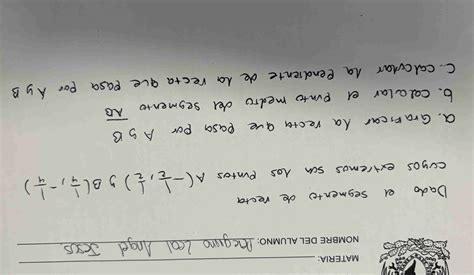 MATERIA:
NOMBRE DEL ALUMNO: Leal Angel Jesus
Dado el segmento de recta
cuyos extremos son los puntos A(-1/2, 1/2) y B(1/4, -1/4)
a. Graficar la recta que pasa por A y B
b. Calcular el punto medio del segmento AB
c. calcular la Pendiente de la recta que pasa por A y B